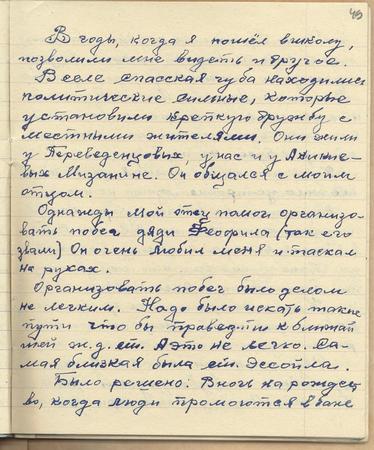 49
В годы, когда я пошёл в школу,
позволили мне видеть и другое.
В селе спасская губа находились
политические сильные, которые
установили крепкую дружбу с
местными жителями. Они жили
у Переведенцовых, у нас и у
вых Мизанине. Он общался с моим
отцом.
Однажды мой отец помог организо-
вать побег дяди Феофила (так его
звали) Он очень любил меня и таскал
на руках.
Организовать побег было делом
не легким. Надо было искать такие
пути что бы праведми к ближай
шей ж.д. ст. А это не легко. Са-
мая близкая была ст. Эссойла.
Было решено: В ночь на рождест
во, когда люди промоются в бане